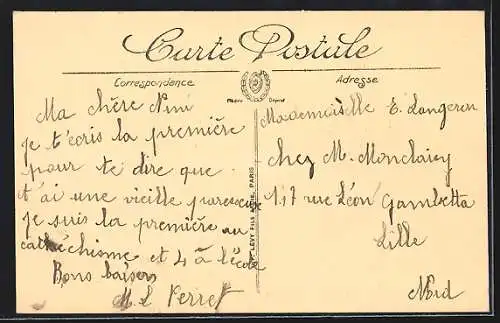 Carte Postale
Correspondance
Adresse
Ma chère Nini
je t'ecris la première
pour te dire que
t'ai une vieille paresseuse
je suis la première au
cathéchisme et 4 à l'école
Bons baisers
M. L Perret
LEVY FILS PARIS
Mademoiselle E. Langeron
chez M. Monclaiey
117 rue Léon Gambetta
Lille
Nord